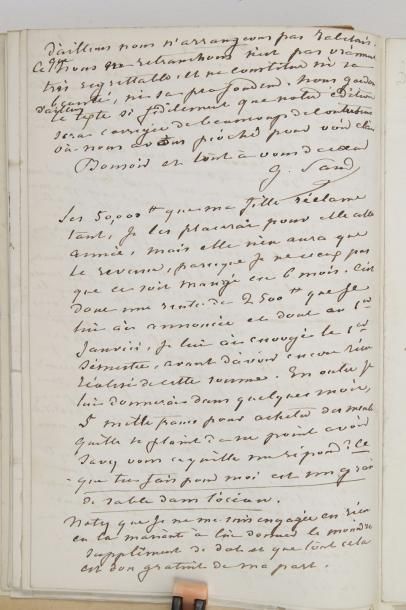 d'ailleurs nous n'arrangeons pas Rabelais.
Ce que nous ne retranchons n'est pas vraiment
très regrettable, et ne constitue ni sa
beauté, ni sa profondeur. Nous gardons
d'ailleurs le texte si fidèlement que notre édition
sera corrigée de beaucoup de
où nous avons pioché pour voir clair
Bonsoir et tout à vous de cœur
G. Sand
Les 50,000 ## que ma fille réclame
tant, je les placerai pour elle cette
année, mais elle n'en aura que
le revenu, parceque je ne veux pas
que ce soit mangé en 6 mois. C'est
donc une rente de 2500 ## que je
lui ai annoncée et dont au 1er
Janvier, je lui ai envoyé le 1er
semestre, avant d'avoir encore rien
réalisé de cette somme. En outre je
lui donnerai dans quelques mois,
5 mille francs pour acheter des meubles
qu'elle se plaint de ne point avoir
Savez vous ce qu'elle me répond? Ce
que tu fais pour moi est un grain
de sable dans l'océan.
Notez que je ne me suis engagée en rien
en la mariant à lui donner le moindre
supplément de dot et que tout cela
est don gratuit de ma part.